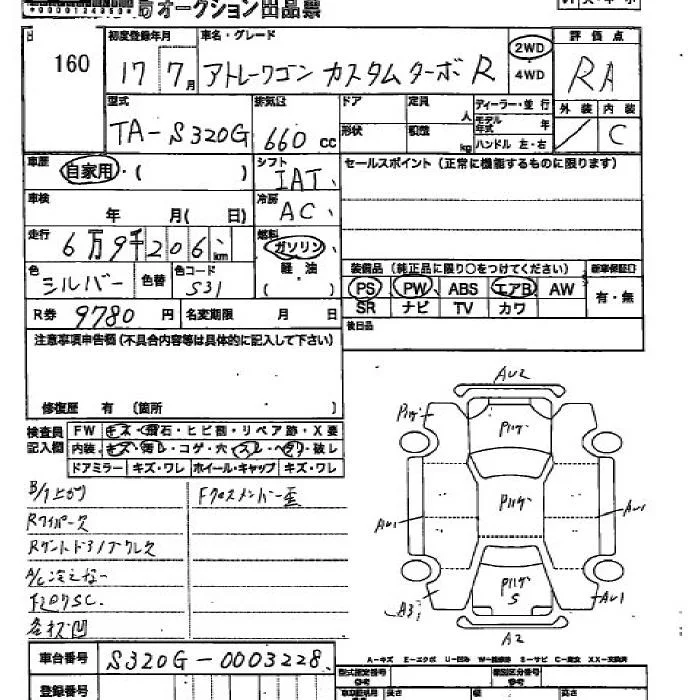 オークション出品票
160
初度登録年月
車名・グレード
17 7月
アトレーワゴン カスタムターボR
2WD
4WD
評価点
RA
外装 内装
C
型式
TA-S320G
排気量
660 cc
ドア
定員 人
形状
積載 kg
ディーラー・並行
モデル年式 年
ハンドル 左・右
車歴
自家用・( )
シフト
IAT
セールスポイント(正常に機能するものに限ります)
車検
年 月( 日)
冷房
AC
走行
6万9千206km
燃料
ガソリン
軽油
( )
色
シルバー
色替
色コード
S31
装備品(純正品に限り○をつけてください)
新車保証書
PS PW ABS エアB AW
SR ナビ TV カワ
有・無
R券 9780円
名変期限 月 日
後日品
注意事項申告欄(不具合内容等は具体的に記入して下さい)
修復歴 有(箇所 )
検査員記入欄
FW キズ・飛石・ヒビ割・リペア跡・X要
内装 キズ・汚レ・コゲ・穴・スレ・ヘタリ・破レ
ドアミラー キズ・ワレ ホイール・キャップ キズ・ワレ
B/T上がり
Fクロスメンバー歪
Rワイパー欠
A/C冷えない
各杉凹
AU2
Pハゲ
Pハゲ
Pハゲ
AU1
AU1
Pハゲ
S
A3
AU1
A2
A-キズ E-エクボ U-凹み W-補修跡 S-サビ C-腐食 XX-交換済
車台番号
S320G-0003228
登録番号
型式指定番号
類別区分番号
長さ
幅
高さ